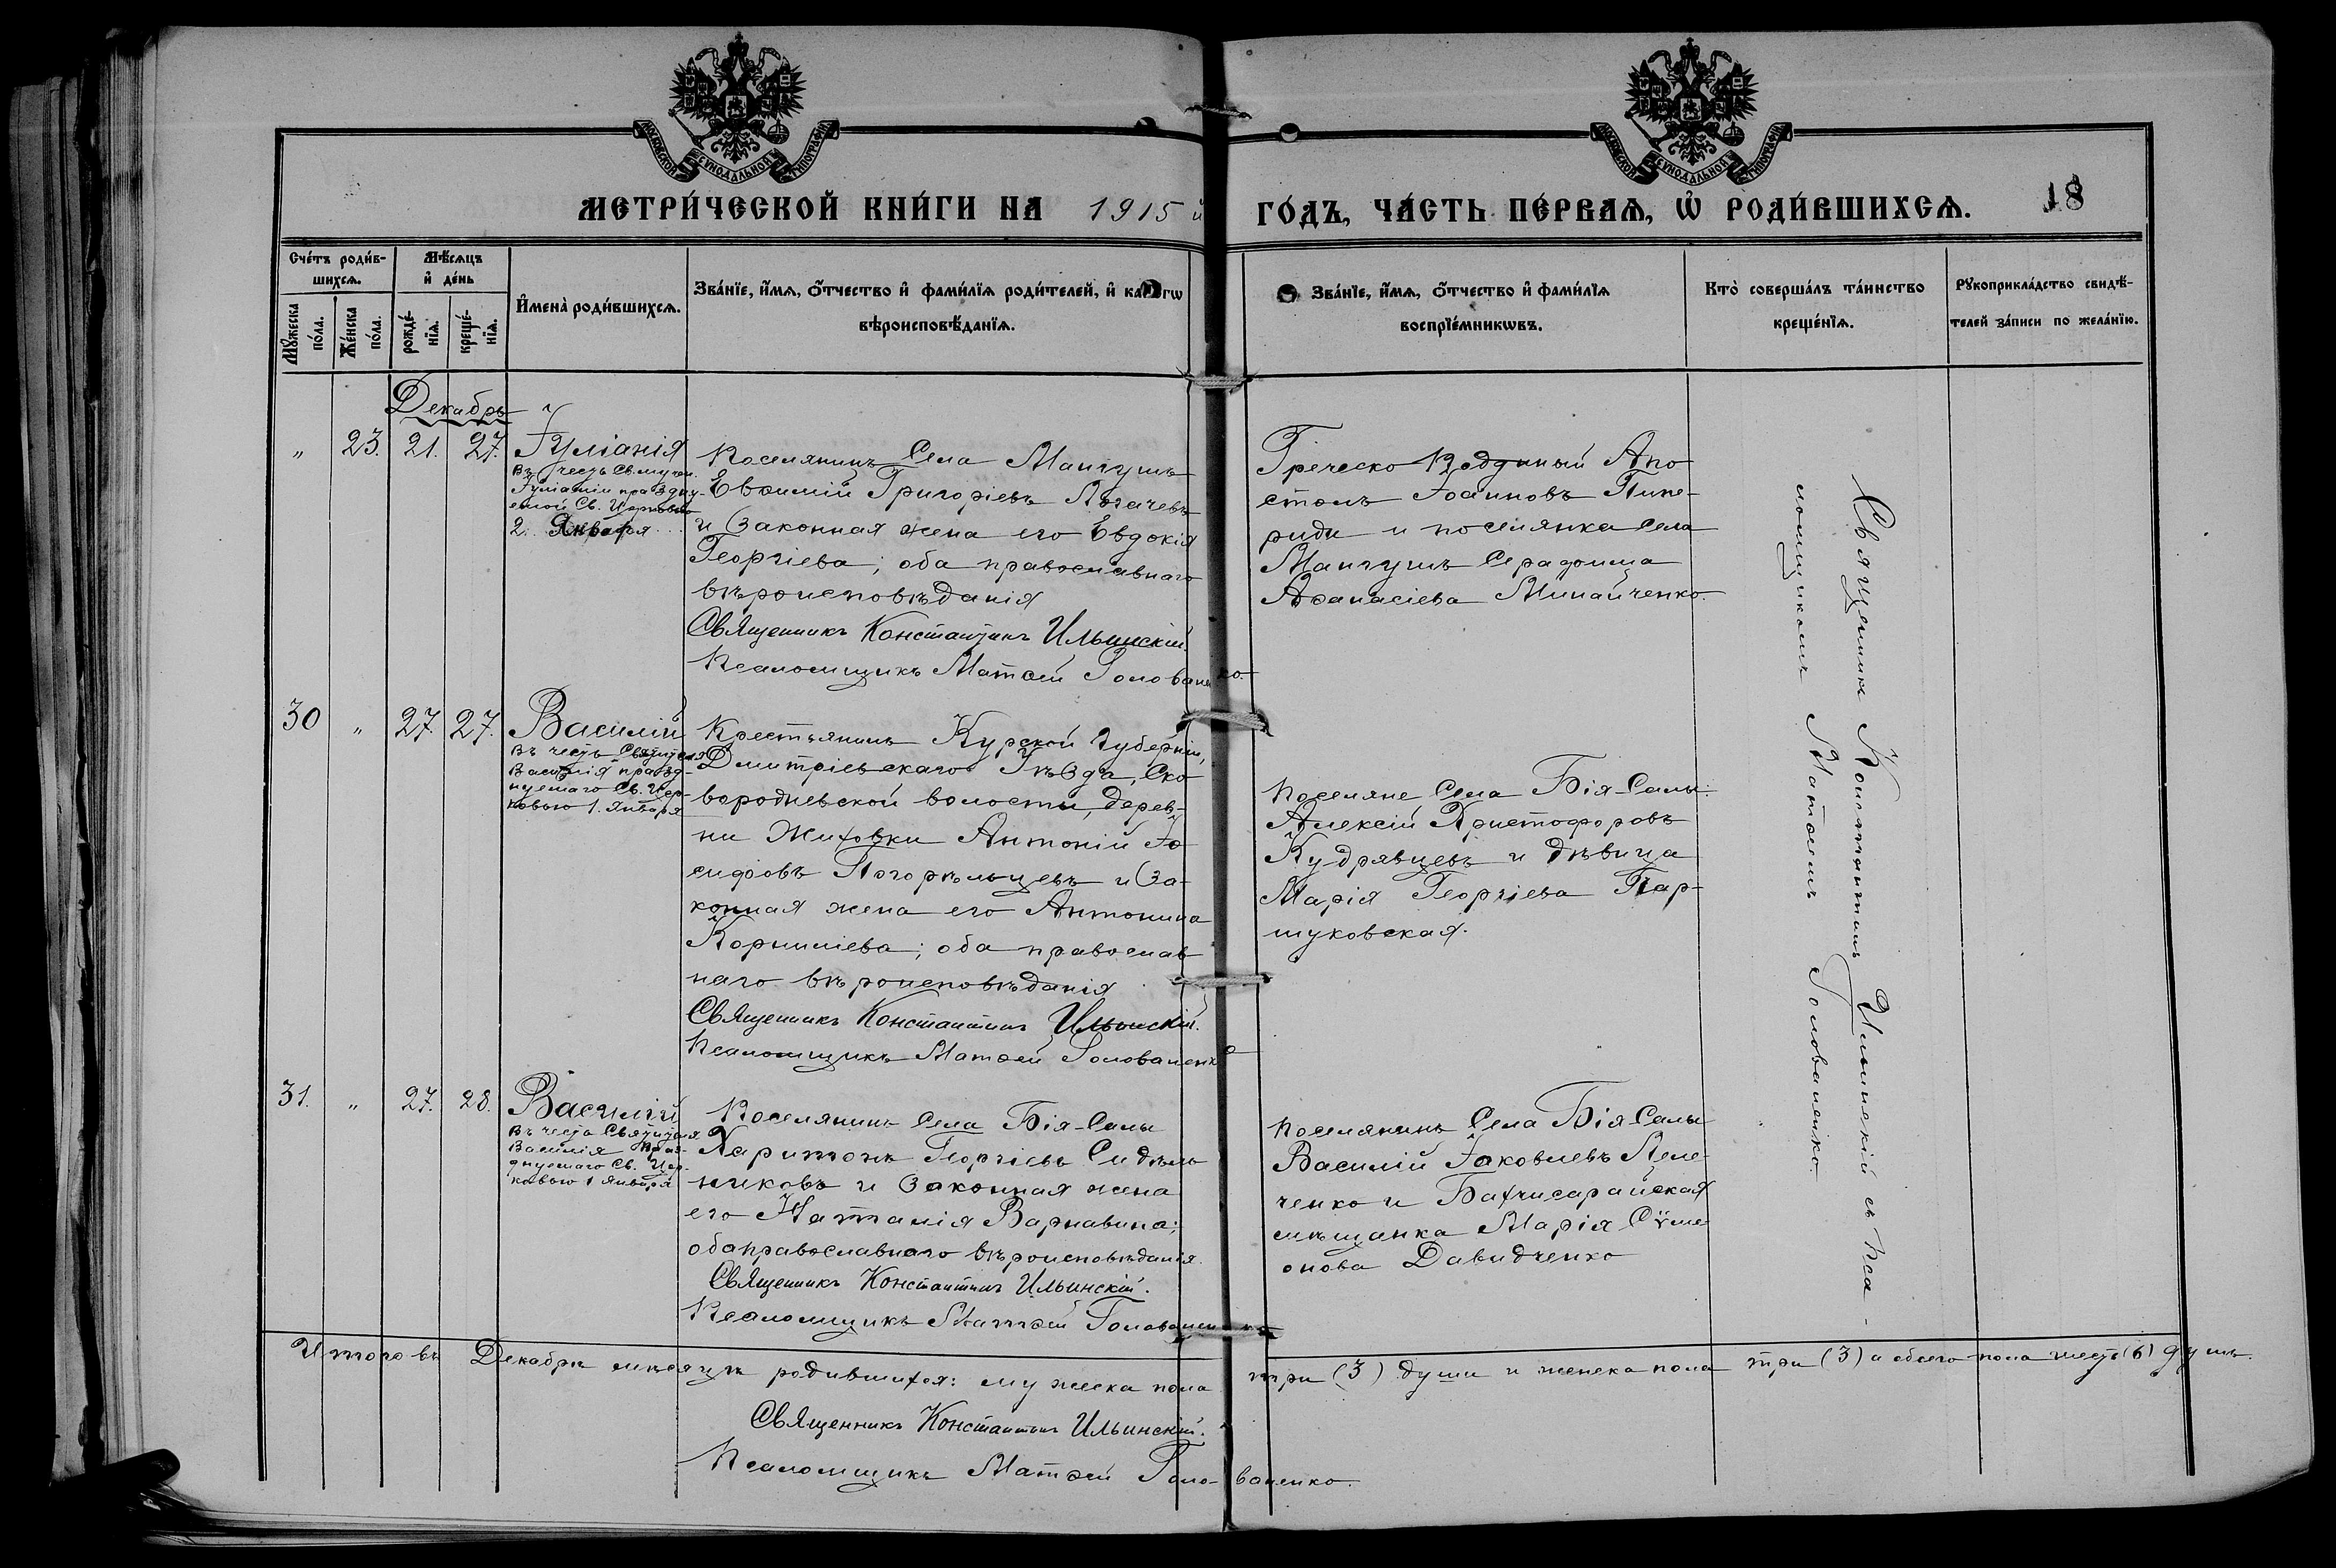 МОСКОВСКОЙ СУНОДАЛЬНОЙ ТИПОГРАФІИ
МОСКОВСКОЙ СУНОДАЛЬНОЙ ТИПОГРАФІИ
МЕТРИ́ЧЕСКОЙ КНИ́ГИ НА 1915 й ГО́ДЪ, ЧА́СТЬ ПЕ́РВАѦ, Ѡ҆ РОДИ́ВШИХСѦ. 18
Сче́тъ роди́в-
шихсѧ.
Мꙋ́жеска
по́ла.
Же́нска
по́ла.
Мѣ́сѧцъ
и҆ де́нь
рожде́-
нїѧ.
креще́-
нїѧ.
И҆мена̀ роди́вшихсѧ.
Зва́нїе, и҆́мѧ, ѻ҆́тчество и҆ фами́лїѧ роди́телей, и҆ како́гѡ
вѣроисповѣ́данїѧ.
Зва́нїе, и҆́мѧ, ѻ҆́тчество и҆ фами́лїѧ
воспрїе́мникѡвъ.
Кто̀ соверша́лъ та́инство
креще́нїѧ.
Рꙋкоприкла́дство свидѣ́-
телей за́писи по жела́нїю.
Декабрь
" 23. 21. 27.
Іуліанія
въ честь Св. мучен.
Іуліаніи праздну-
емой Св. Церковью
2. Января
Поселянинъ Села Мангушъ
Евѳимій Григоріевъ
и законная жена его Евдокія
Георгіева; оба православнаго
вѣроисповѣданія
Священникъ Константинъ Ильинскій.
Псаломщикъ Матѳей Голованенко.
Греческо Подданый Апо-
столъ Іоанновъ
и поселянка села
Мангушъ Серафима
Аѳанасіева Минайченко.
30 " 27. 27.
Василій
въ честь Святителя
Василія празд-
нуемаго Св. Цер-
ковью 1. Января
Крестьянинъ Курской Губерніи,
Дмитріевскаго Уѣзда, Ско-
вородневской волости, дерев-
ни Антоній Іо-
сифовъ Погорѣльцевъ и за-
конная жена его Антонина
Корниліева; оба православ-
наго вѣроисповѣданія
Священникъ Константинъ Ильинскій.
Псаломщикъ Матѳей Голованенко
Поселяне Села Бія-Салы:
Алексій Христофоровъ
Кудрявцевъ и дѣвица
Марія Георгіева Пар-
шуковская.
31. " 27. 28.
Василій
въ честь Святителя
Василія праз-
днуемаго Св. Цер-
ковью 1 Января
Поселянинъ Села Бія-Салы
Харитонъ Георгіевъ Сидѣль-
никовъ и законная жена
его Наталія Варнавина;
оба православнаго вѣроисповѣданія.
Священникъ Константинъ Ильинскій.
Псаломщикъ Матѳей Голованенко
Поселянинъ Села Бія Салы
Василій Іаковлевъ
и Бахчисарайская
мѣщанка Марія Сѵме-
онова Давидченко
Священникъ Константинъ Ильинскій съ Пса-
ломщикомъ Матѳемъ Голованенко.
Итого въ Декабрѣ мѣсяцѣ родившихся: мужеска пола три (3) души и женска пола три (3) а обоего пола шесть (6) душъ.
Священникъ Константинъ Ильинскій.
Псаломщикъ Матѳей Голо-ваненко.